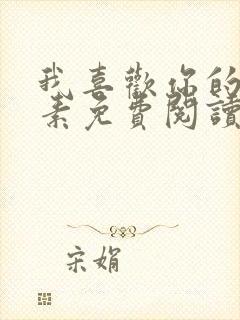 我喜歡你的
素免費閱讀
宋娟